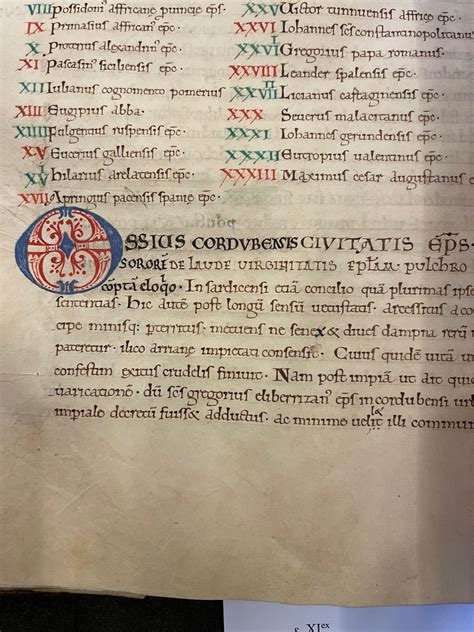 VIII Possidoni' affricane puincie ep̄s.
IX Primasius affricanus ep̄c.
X Proterius alexandrin' ep̄c.
XI Pascasin' siciliensis ep̄c.
XII Iulianus cognomento pomerius
XIII Eugipius abba.
XIIII Fulgentius ruspensis ep̄c.
XV Eucerius galliensis ep̄c.
XV Hilarius arelatensis ep̄c.
XVII Apringius pacensis spanie ep̄c.
XXV Victor tunnuensis affrice ep̄c.
XXVI Iohannes sc̄e constantinopolitanus
XXVI Gregorius papa romanus.
XXVIII Leander spalensis ep̄c.
XXVII Licianus cartaginensis ep̄c.
XXX Seuerus malacitanus ep̄c.
XXXI Iohannes gerundensis ep̄c.
XXXII Eutropius ualentinus ep̄c.
XXXIII Maximus cesar augustanus
OSSIUS CORDUBENSIS CIVITATIS EP̄S.
SORORI DE LAUDE UIRGINITATIS EPL̄AM PULCHRO
cōpta eloq̄o. In sardicensi etiā concilio quā plurimas ipse
sentencias. Hic aut̄ post longū seniū uetustatis. arcessitus a co
cipe minisq; pterritus. metuens ne senex & diues dampna rerū
pateretur. ilico arriane impietati consensit. Cuius quidē uitā
confestim exitus crudelis finiuit. Nam post impiā ut ait
uaricationē. dū sc̄s gregorius eliberritan' ep̄s in cordubensi
impiale decretū fuiss& adductus. ac minime uelit illi commun
l&
s. XIex